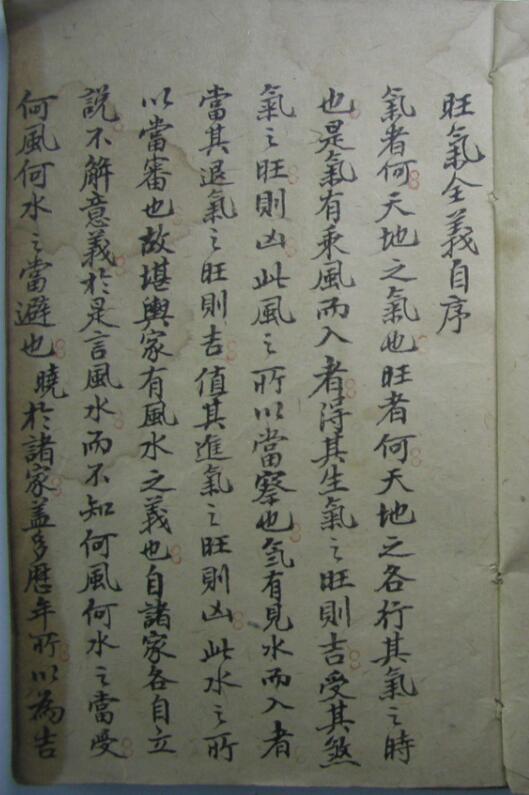 旺氣全義自序
氣者何天地之氣也旺者何天地之各行其氣之時
也是氣有乘風而入者得其生氣之旺則吉受其煞
氣之旺則凶此風之所以當察也氣有見水而入者
當其退氣之旺則吉值其進氣之旺則凶此水之所
以當審也故堪輿家有風水之義也自諸家各自立
說不解意義於是言風水而不知何風何水之當受
何風何水之當避也曉於諸家盖多歷年所以為吉